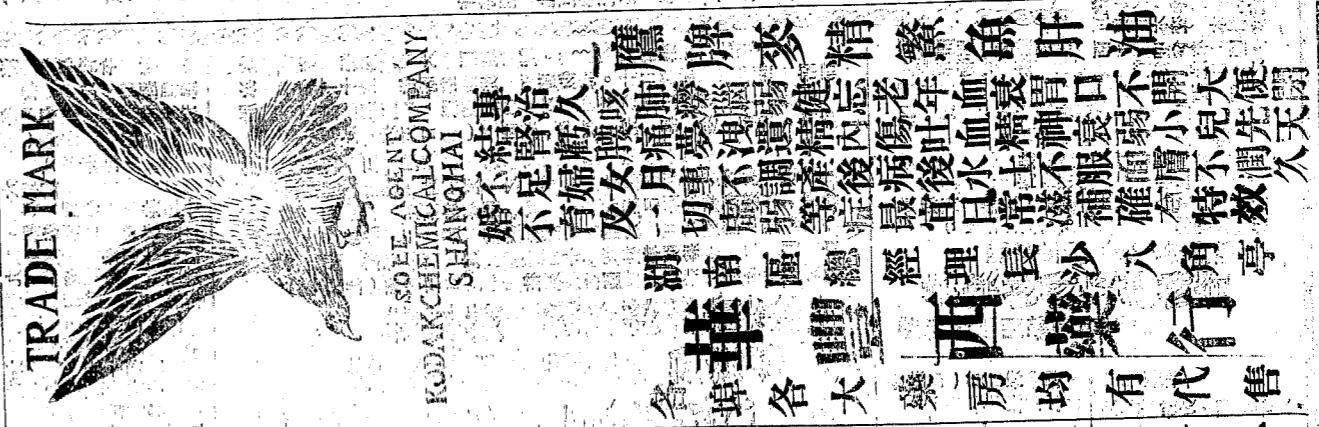 TRADE MARK
SOEE AGENT
KODAK CHEMICAL COMPANY
SHANGHAI
鷹牌麥精鱉魚肝油
專治久咳肺癆腦弱健忘老年血衰胃口不開大便閉
結腎虧腰痛夢洩遺精內傷吐血精神衰弱小兒先天
不足婦女月事不調產後病後水土不服肌膚不潤久
婚不育及一切虛弱等症最宜日常滋補確有特效
湖南區總經理長沙八角亭
華西藥行
各埠各大藥房均有代售